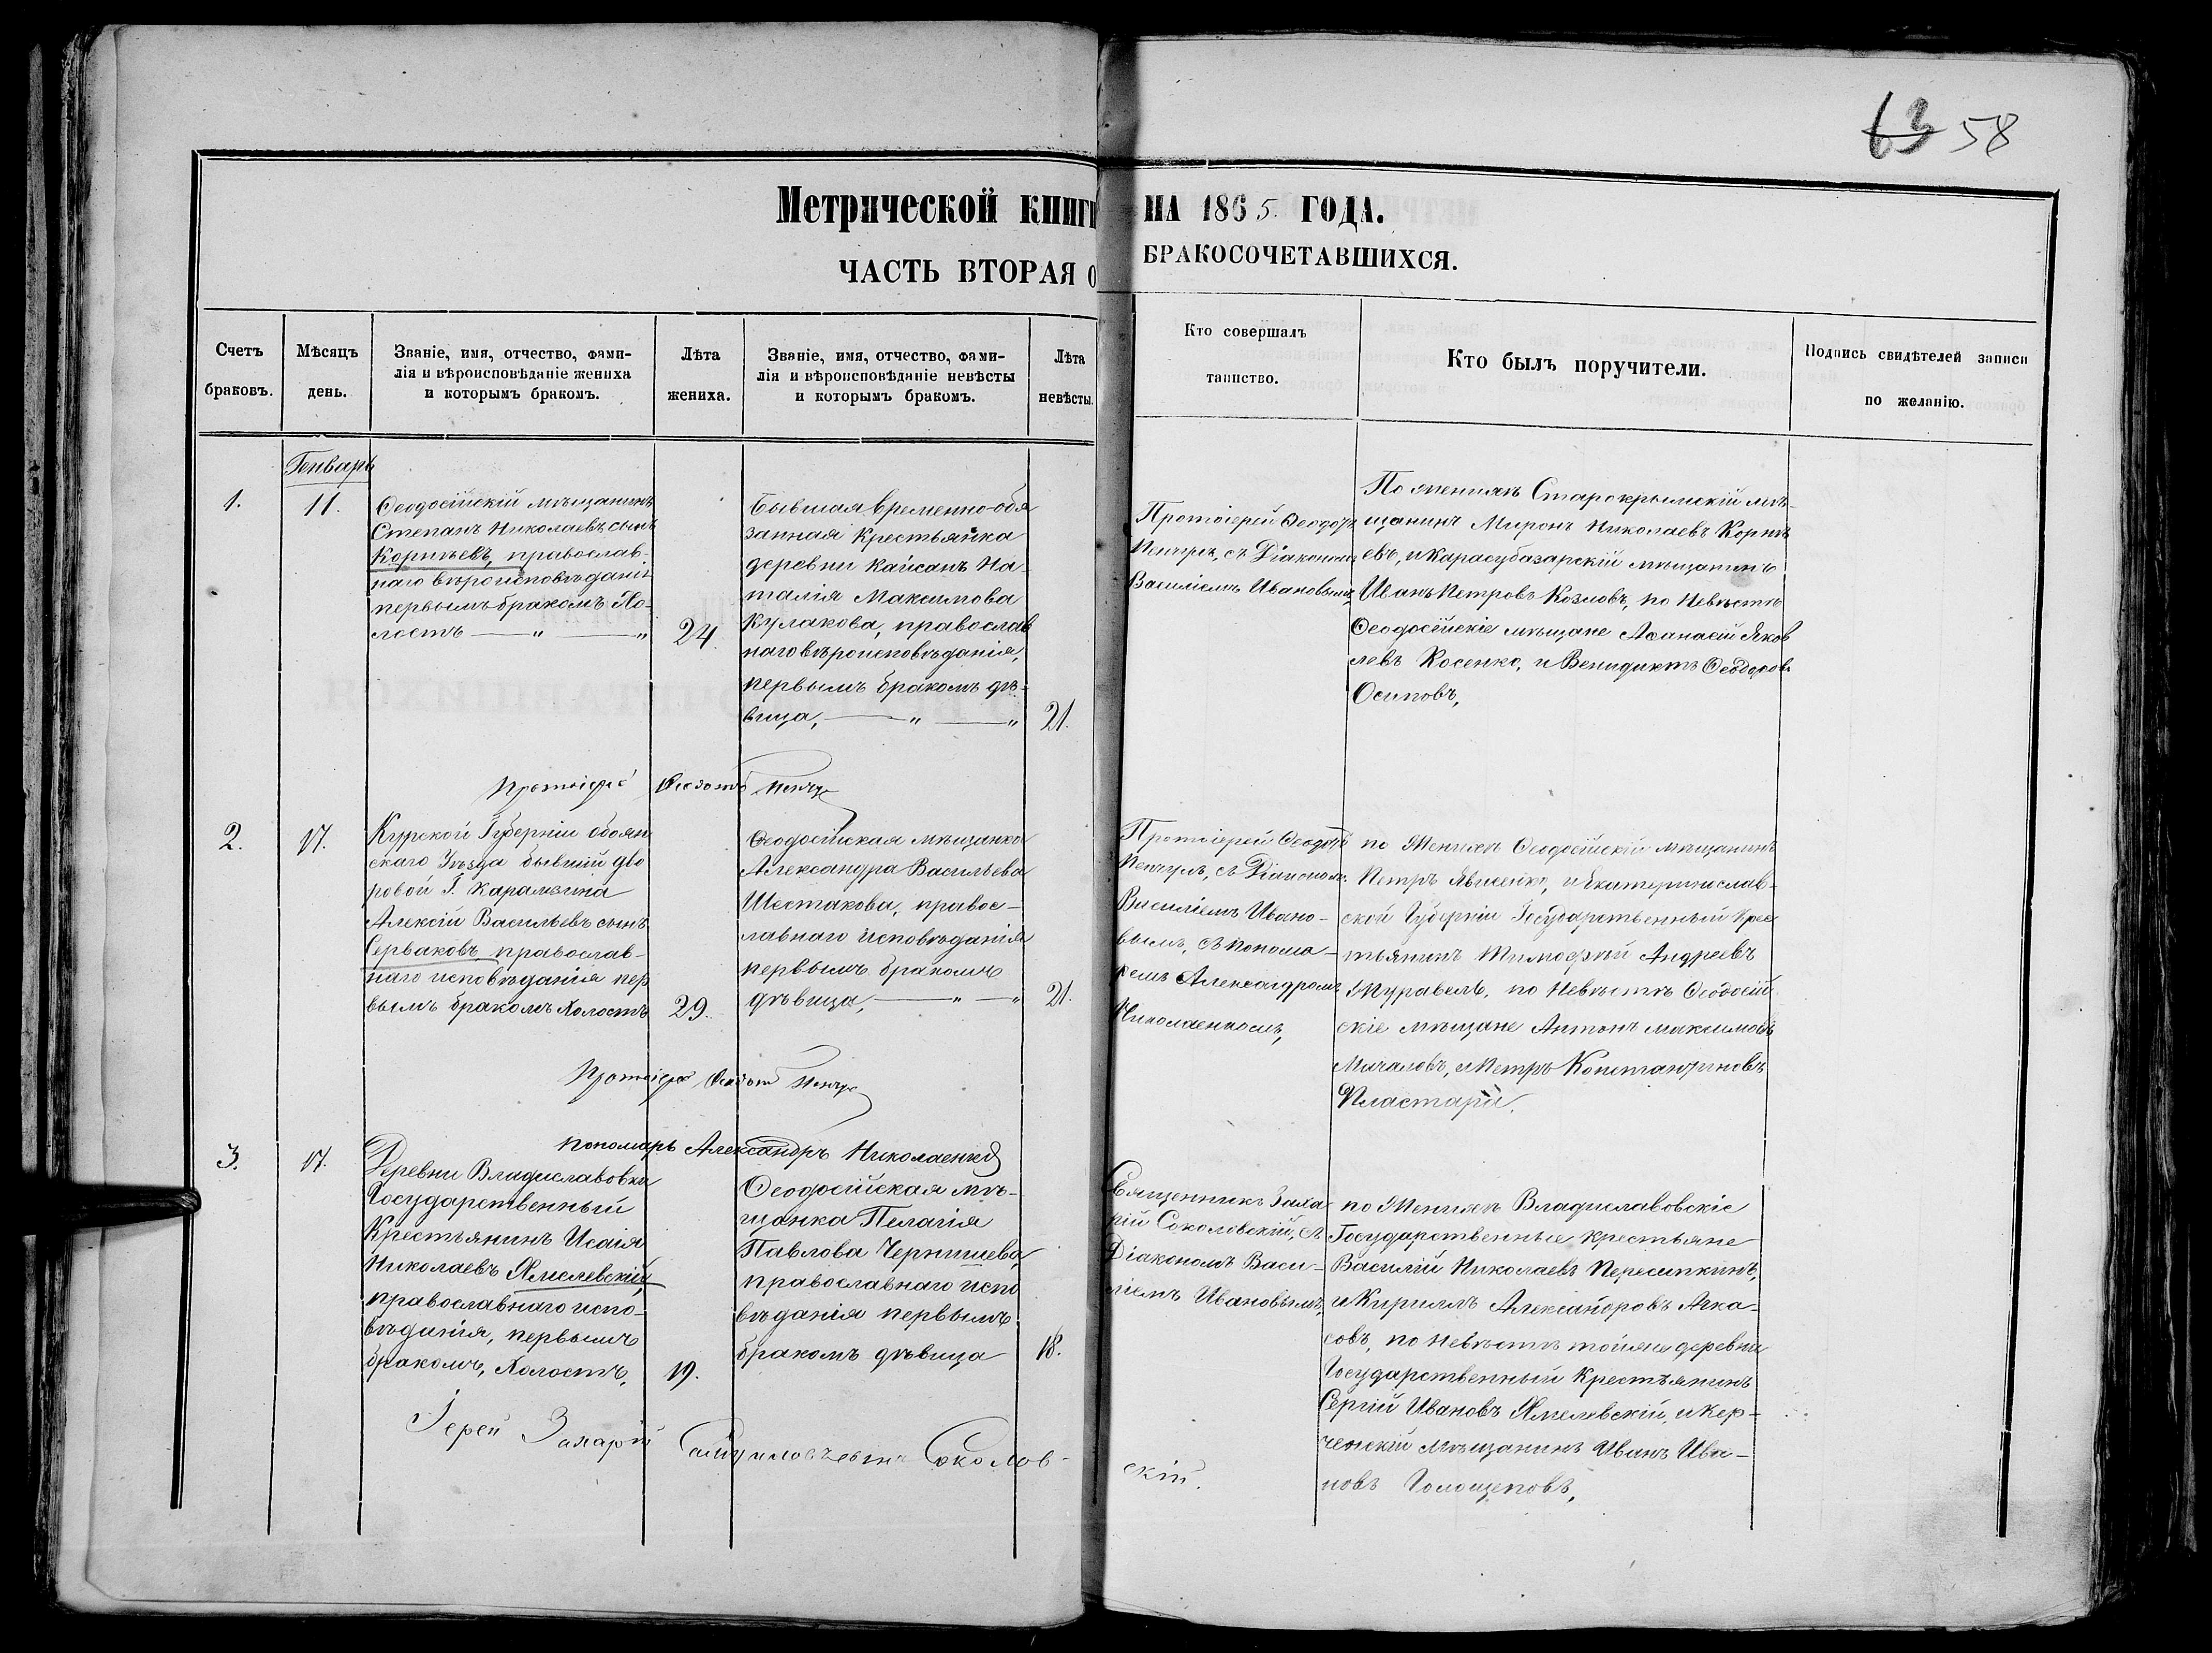 63 58
Метрической книги на 1865. года.
Часть вторая о бракосочетавшихся.
Счетъ браковъ.
Мѣсяцъ день.
Званіе, имя, отчество, фами-
лія и вѣроисповѣданіе жениха
и которымъ бракомъ.
Лѣта жениха.
Званіе, имя, отчество, фами-
лія и вѣроисповѣданіе невѣсты
и которымъ бракомъ.
Лѣта невѣсты.
Кто совершалъ
таинство.
Кто былъ поручители.
Подпись свидѣтелей записи
по желанію.
Генварь
1.
11.
Ѳеодосійскій мѣщанинъ
Степанъ Николаевъ сынъ
Корнѣевъ, православ-
наго вѣроисповѣданія
первымъ бракомъ Хо-
лостъ — „ — „
24.
Бывшая временно-обя
занная Крестьянка
деревни Кайсанъ На-
талія Максимова
Кулакова, православ
наго вѣроисповѣданія,
первымъ бракомъ дѣ-
вица, — „ — „
21.
Протоіерей Ѳеодотъ
съ Діакономъ
Василіемъ Ивановымъ,
По женихѣ Старокрымскій мѣ-
щанинъ Миронъ Николаевъ Корнѣ
евъ, и Карасубазарскій мѣщанинъ
Иванъ Петровъ Козловъ, по Невѣстѣ
Ѳеодосійскіе мѣщане Аѳанасій Яков
левъ Косенко, и Венидиктъ Ѳеодоровъ
Осиповъ,
Протоіерей Ѳеодотъ
2.
17.
Курской Губерніи обоян
скаго Уѣзда бывшій дво
ровой Г. Карамзина
Алексій Васильевъ сынъ
Серваковъ православ-
наго исповѣданія пер
вымъ бракомъ Холостъ
29.
Ѳеодосійская мѣщанка
Александра Васильева
Шестакова, правос-
лавнаго исповѣданія
первымъ бракомъ
дѣвица, — „ — „
21.
Протоіерей Ѳеодотъ
съ Діакономъ
Василіемъ Ивано-
вымъ, съ понома-
ремъ Александромъ
Николаенкомъ,
по Женихѣ Ѳеодосійскій мѣщанинъ
Петръ и Екатеринослав-
ской Губерніи Государственный Крес
тьянинъ Тимоѳей Андреевъ
Журавель, по Невѣстѣ Ѳеодосій
скіе мѣщане Антонъ Максимовъ
Михаловъ, и Петръ Константиновъ
Пластара.
Протоіерей Ѳеодотъ
пономарь Александръ Николаенко
3.
17.
Деревни Владиславовки
Государственный
Крестьянинъ Исаія
Николаевъ Ямелевскій,
православнаго испо-
вѣданія, первымъ
бракомъ, Холостъ,
19.
Ѳеодосійская мѣ-
щанка Пелагія
Павлова Чернишева,
православнаго испо
вѣданія первымъ
бракомъ дѣвица
18.
Священникъ Заха
рій Соколовскій, съ
Діакономъ Васи-
ліемъ Ивановымъ,
по Женихѣ Владиславовскіе
Государственные крестьяне
Василій Николаевъ Пересыпкинъ,
и Кириллъ Александровъ Ака-
совъ, по Невѣстѣ тойже деревни
Государственный Крестьянинъ
Сергій Ивановъ Ямелевскій, и Кер-
ченскій мѣщанинъ Иванъ Ива-
новъ Голощеповъ,
Іерей Захарій Соколов-
скій.